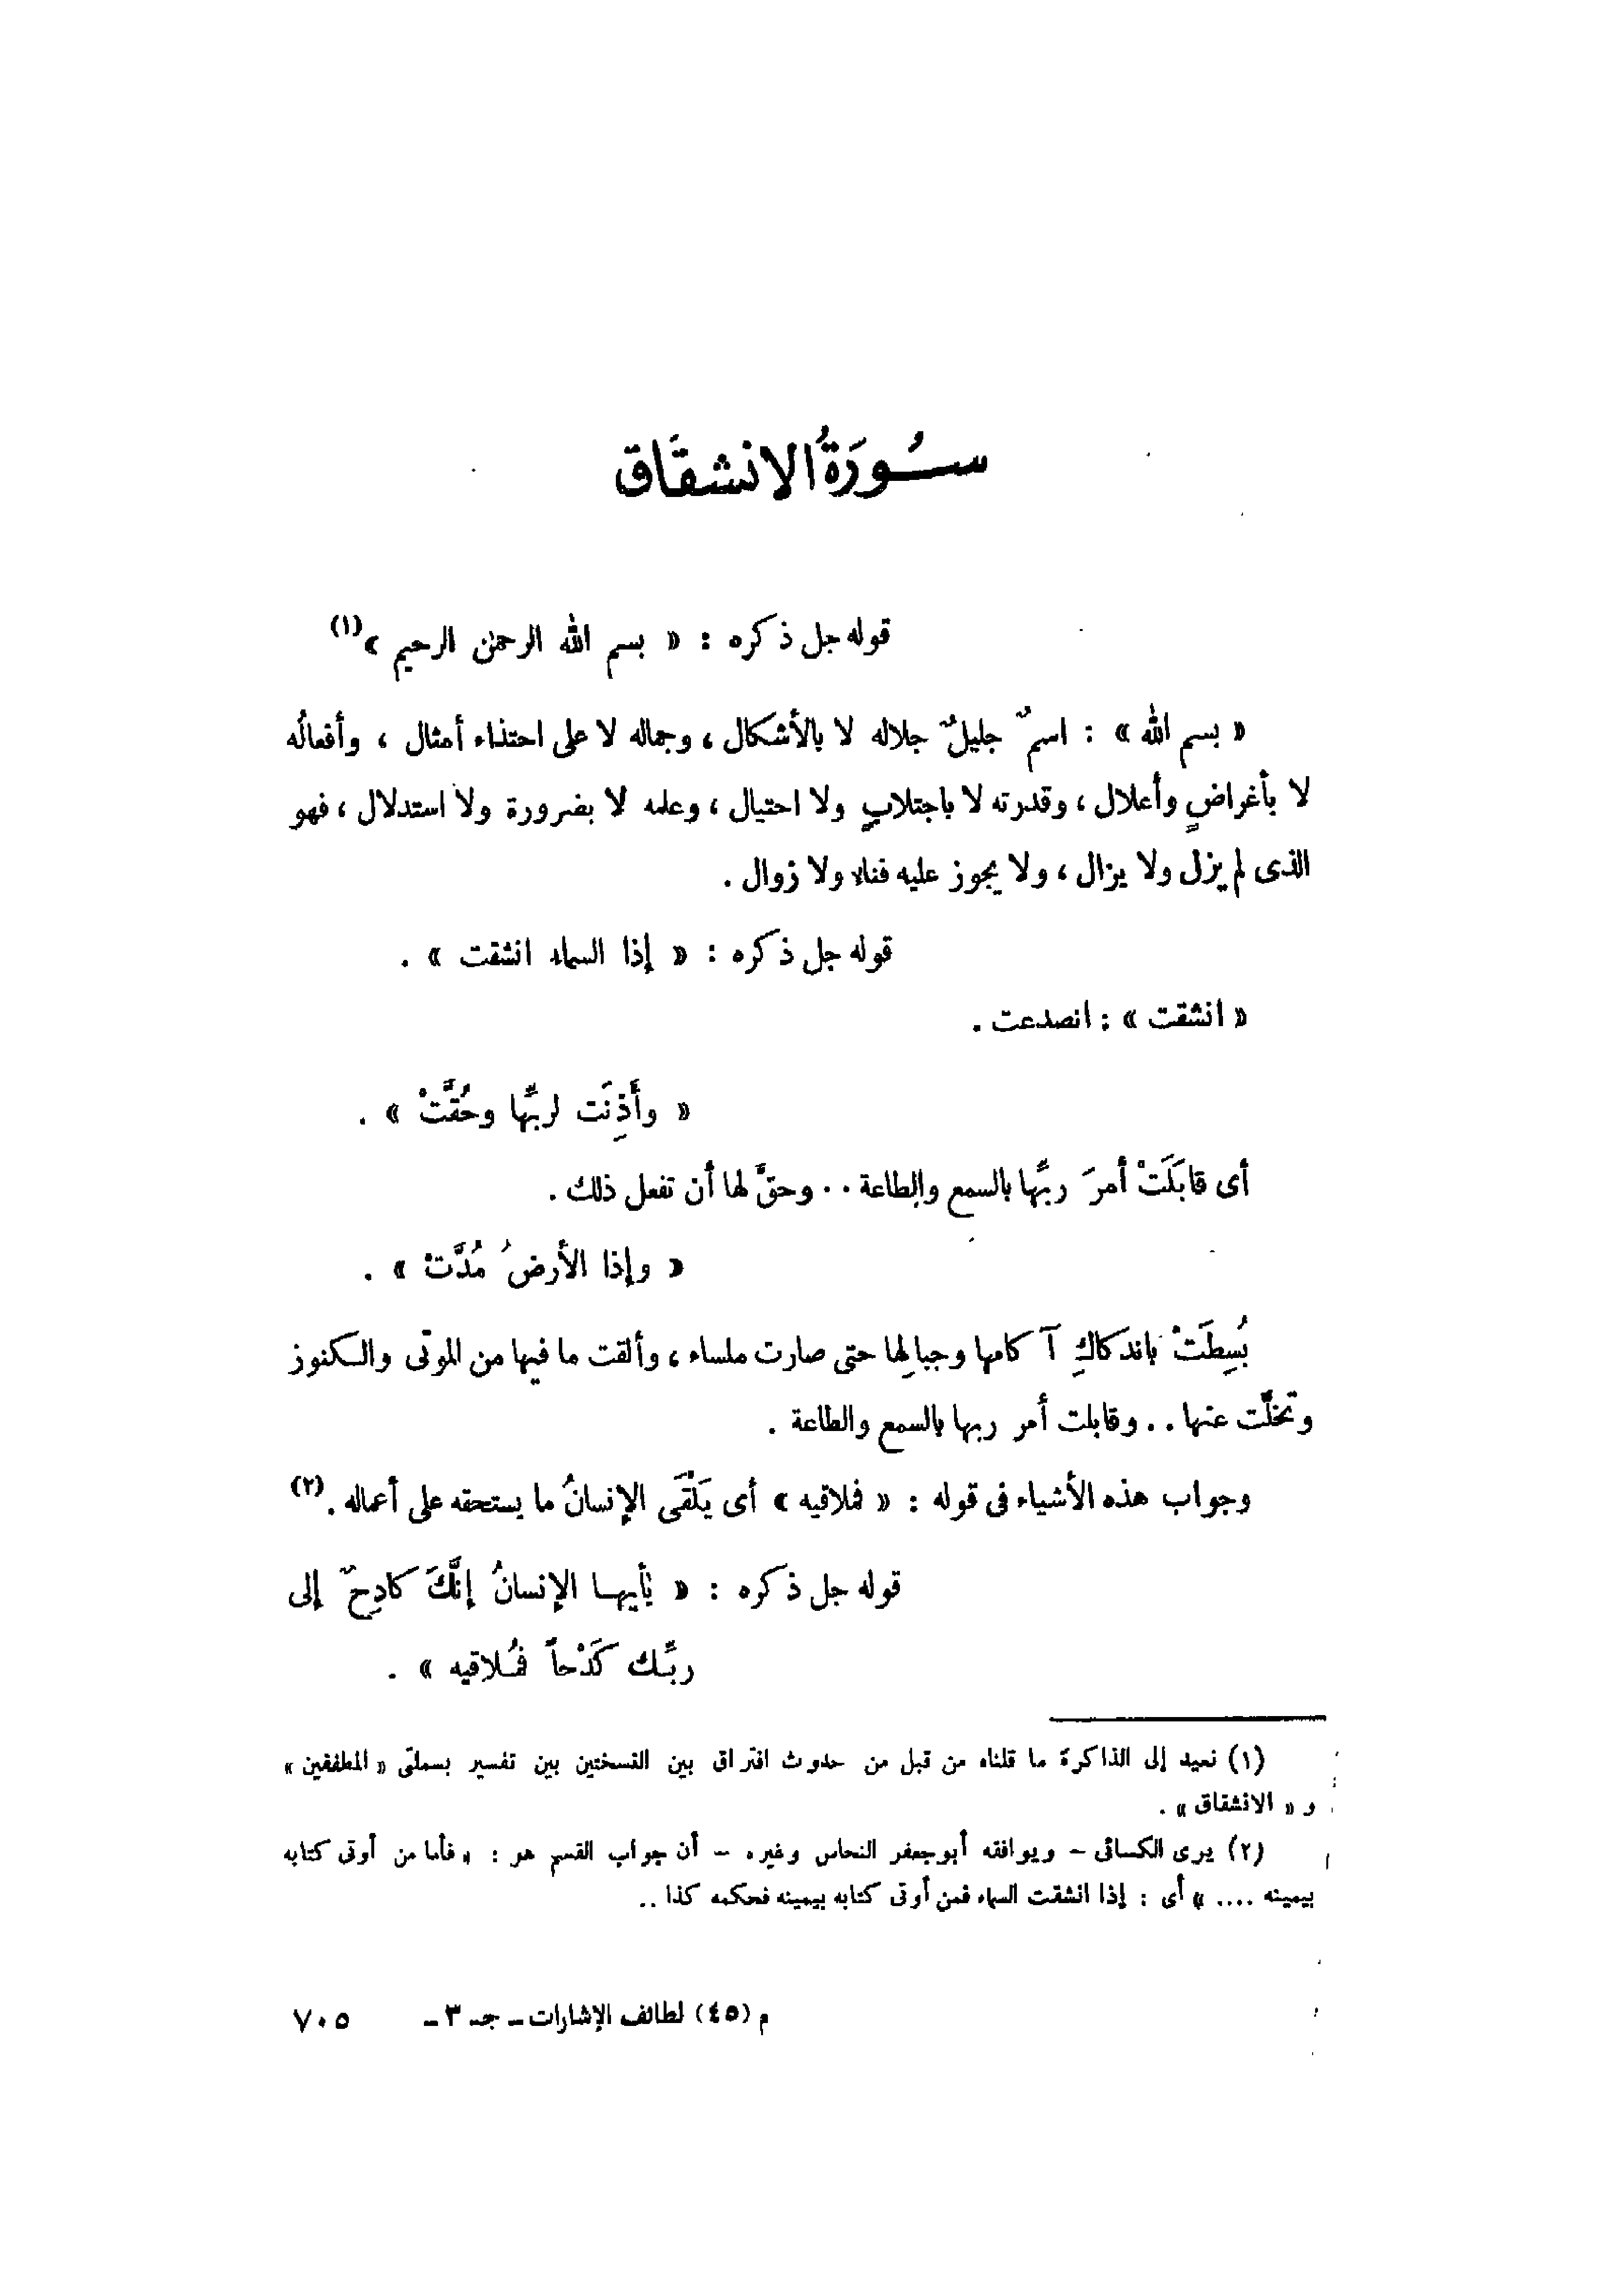 سُورَةُ الانشقَاق
قوله جل ذكره : « بسم الله الرحمن الرحيم »(١)
« بسم الله » : اسمٌ جليلٌ جلاله لا بالأشكال ، وجماله لا على احتذاء أمثال ، وأفعالُه
لا بأغراضٍ وأعلال ، وقدرته لا باجتلابٍ ولا احتيال ، وعلمه لا بضرورة ولا استدلال ، فهو
الذى لم يزل ولا يزال ، ولا يجوز عليه فناء ولا زوال .
قوله جل ذكره : « إذا السماء انشقت » .
« انشقت » : انصدعت .
« وأَذِنَت لربِّها وحُقَّتْ » .
أى قابَلَتْ أمرَ ربِّها بالسمع والطاعة .. وحقَّ لها أن تفعل ذلك .
« وإذا الأرضُ مُدَّتْ » .
بُسِطَتْ باندكاكِ آكامها وجبالِها حتى صارت ملساء ، وألقت ما فيها من الموتى والكنوز
وتخلَّت عنها .. وقابلت أمر ربها بالسمع والطاعة .
وجواب هذه الأشياء فى قوله : « فملاقيه » أى يَلْقَى الإنسانُ ما يستحقه على أعماله .(٢)
قوله جل ذكره : « يٰأيها الإنسانُ إنَّكَ كادِحٌ إلى
ربِّك كَدْحاً فمُلاقيه » .
(١) نعيد إلى الذاكرة ما قلناه من قبل من حدوث افتراق بين النسختين بين تفسير بسملتى « المطففين »
و « الانشقاق » .
(٢) يرى الكسائى - ويوافقه أبو جعفر النحاس وغيره - أن جواب القسم هو : « فأما من أوتى كتابه
بيمينه .... » أى : إذا انشقت السماء فمن أوتى كتابه بيمينه فحكمه كذا ..
م (٤٥) لطائف الإشارات - جـ ٣ - ٧٠٥